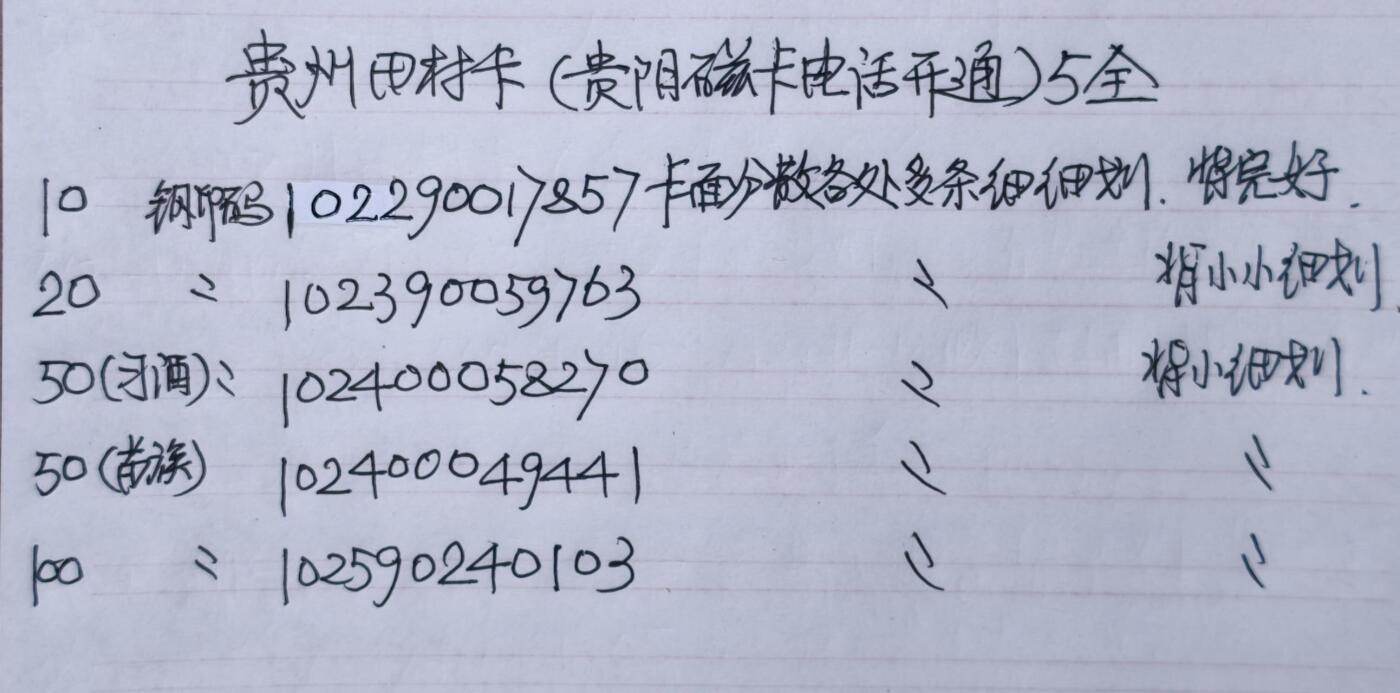 贵州田村卡(贵阳磁卡电话开通)5全
10 钢印码 102290017857 卡面分散各处多条细细划. 背完好.
20 〃 102390059763 〃 背小小细划
50(习酒)〃 102400058270 〃 背小细划.
50(苗族) 102400049441 〃 〃
100 〃 102590240103 〃 〃